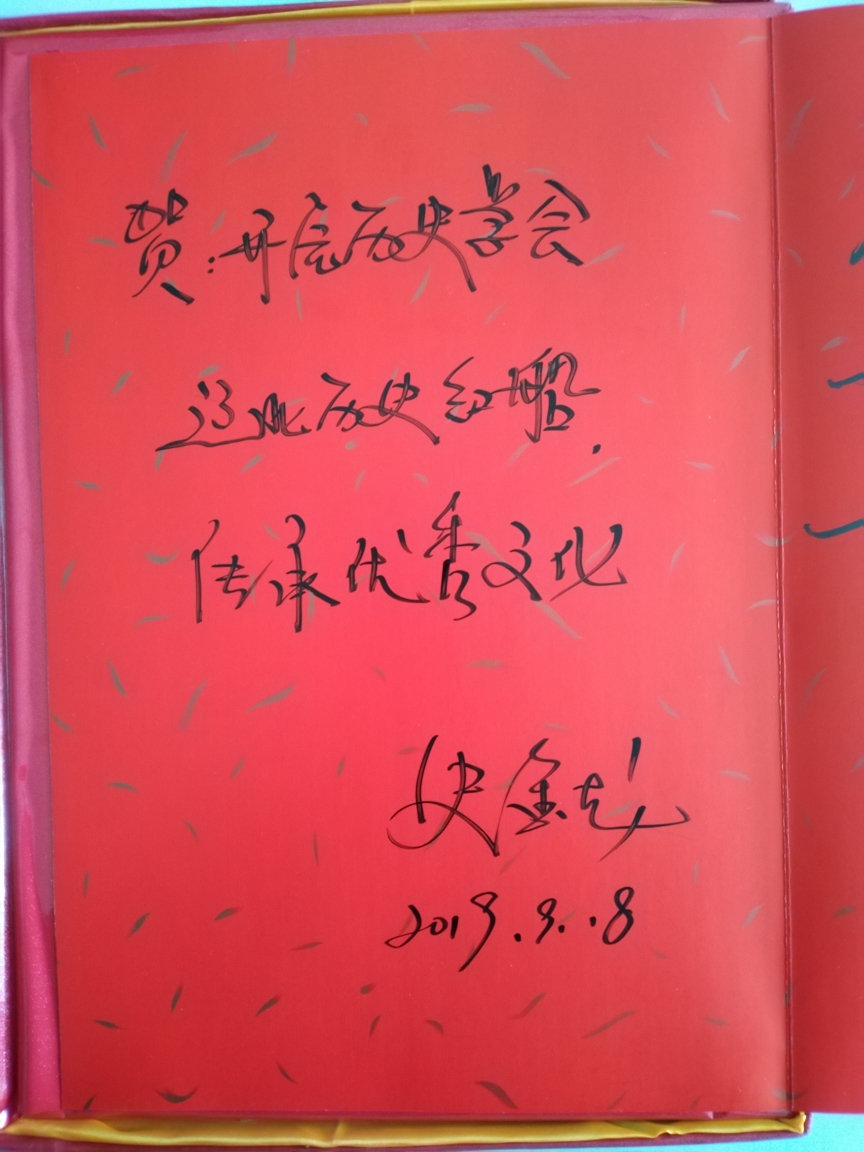 贺:开原历史学会
辽北历史
传承优秀文化
史金龙
2019.9.8